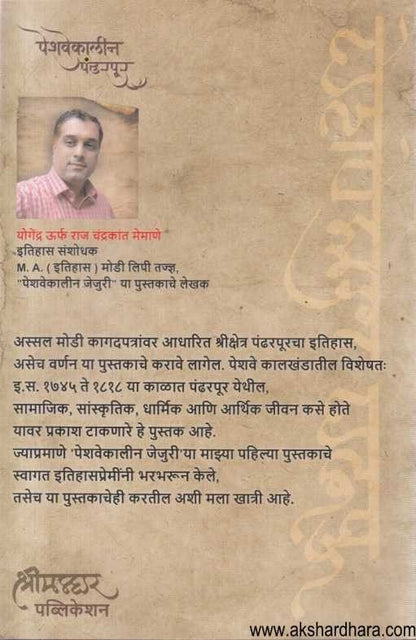 पेशवेकालीन
पंढरपूर
योगेंद्र ऊर्फ राज चंद्रकांत मेमाणे
इतिहास संशोधक
M. A. ( इतिहास ) मोडी लिपी तज्ज्ञ,
"पेशवेकालीन जेजुरी" या पुस्तकाचे लेखक
अस्सल मोडी कागदपत्रांवर आधारित श्रीक्षेत्र पंढरपूरचा इतिहास,
असेच वर्णन या पुस्तकाचे करावे लागेल. पेशवे कालखंडातील विशेषतः
इ.स. १७४५ ते १८१८ या काळात पंढरपूर येथील,
सामाजिक, सांस्कृतिक, धार्मिक आणि आर्थिक जीवन कसे होते
यावर प्रकाश टाकणारे हे पुस्तक आहे.
ज्याप्रमाणे 'पेशवेकालीन जेजुरी'या माझ्या पहिल्या पुस्तकाचे
स्वागत इतिहासप्रेमींनी भरभरून केले,
तसेच या पुस्तकाचेही करतील अशी मला खात्री आहे.
पब्लिकेशन
www.akshardhara.com